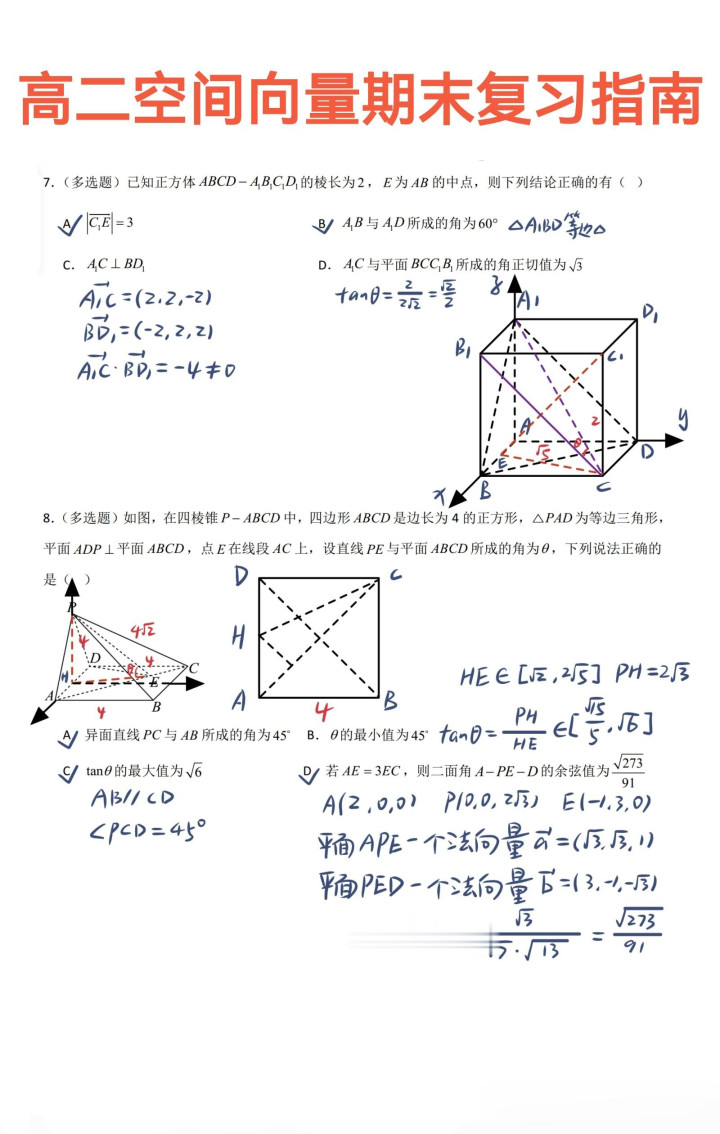 高二空间向量期末复习指南
7.（多选题）已知正方体 ABCD－A₁B₁C₁D₁ 的棱长为2，E为AB的中点，则下列结论正确的有（ ）
A |C₁E|＝3
B A₁B与A₁D所成的角为60° △A₁BD等边△
C. A₁C⊥BD₁
D. A₁C与平面BCC₁B₁所成的角正切值为√3
A₁C=(2,2,-2)
BD₁=(-2,2,2)
A₁C·BD₁=-4≠0
tanθ=2/2√2=√2/2
z A₁ D₁
B₁ C₁
A 2 y
E √5 θ D
x B C
8.（多选题）如图，在四棱锥P－ABCD中，四边形ABCD是边长为4的正方形，△PAD为等边三角形，
平面ADP⊥平面ABCD，点E在线段AC上，设直线PE与平面ABCD所成的角为θ，下列说法正确的
是（ ）
P 4√2
4 D 4 C
H θ E
A 4 B
D C
H
A 4 B
HE∈[√2,2√5] PH=2√3
tanθ=PH/HE∈[√15/5,√6]
A 异面直线PC与AB所成的角为45°
B. θ的最小值为45°
C tanθ的最大值为√6
D 若AE＝3EC，则二面角A－PE－D的余弦值为√273/91
AB//CD
∠PCD=45°
A(2,0,0) P(0,0,2√3) E(-1,3,0)
平面APE一个法向量a=(√3,√3,1)
平面PED一个法向量b=(3,-1,-√3)
√3/√7·√13=√273/91